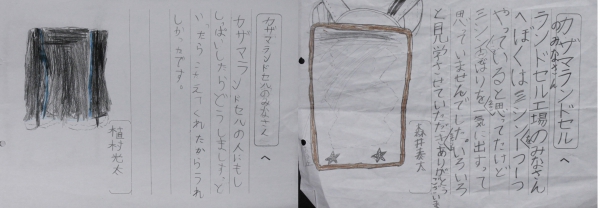 カザマランドセル へ
ランドセル工場のみなさん
へぼくはミシン一つ一つ
やっていると思ってたけど
思っていませんでした。いろいろ
と見学させていただきありがとうございます
カザマランドセルのみなさん へ
カザマランドセルの人にもし
しっぱいしたらどうしますか?と
いったらこたえてくれたからうれ
しかったです。
植村光太